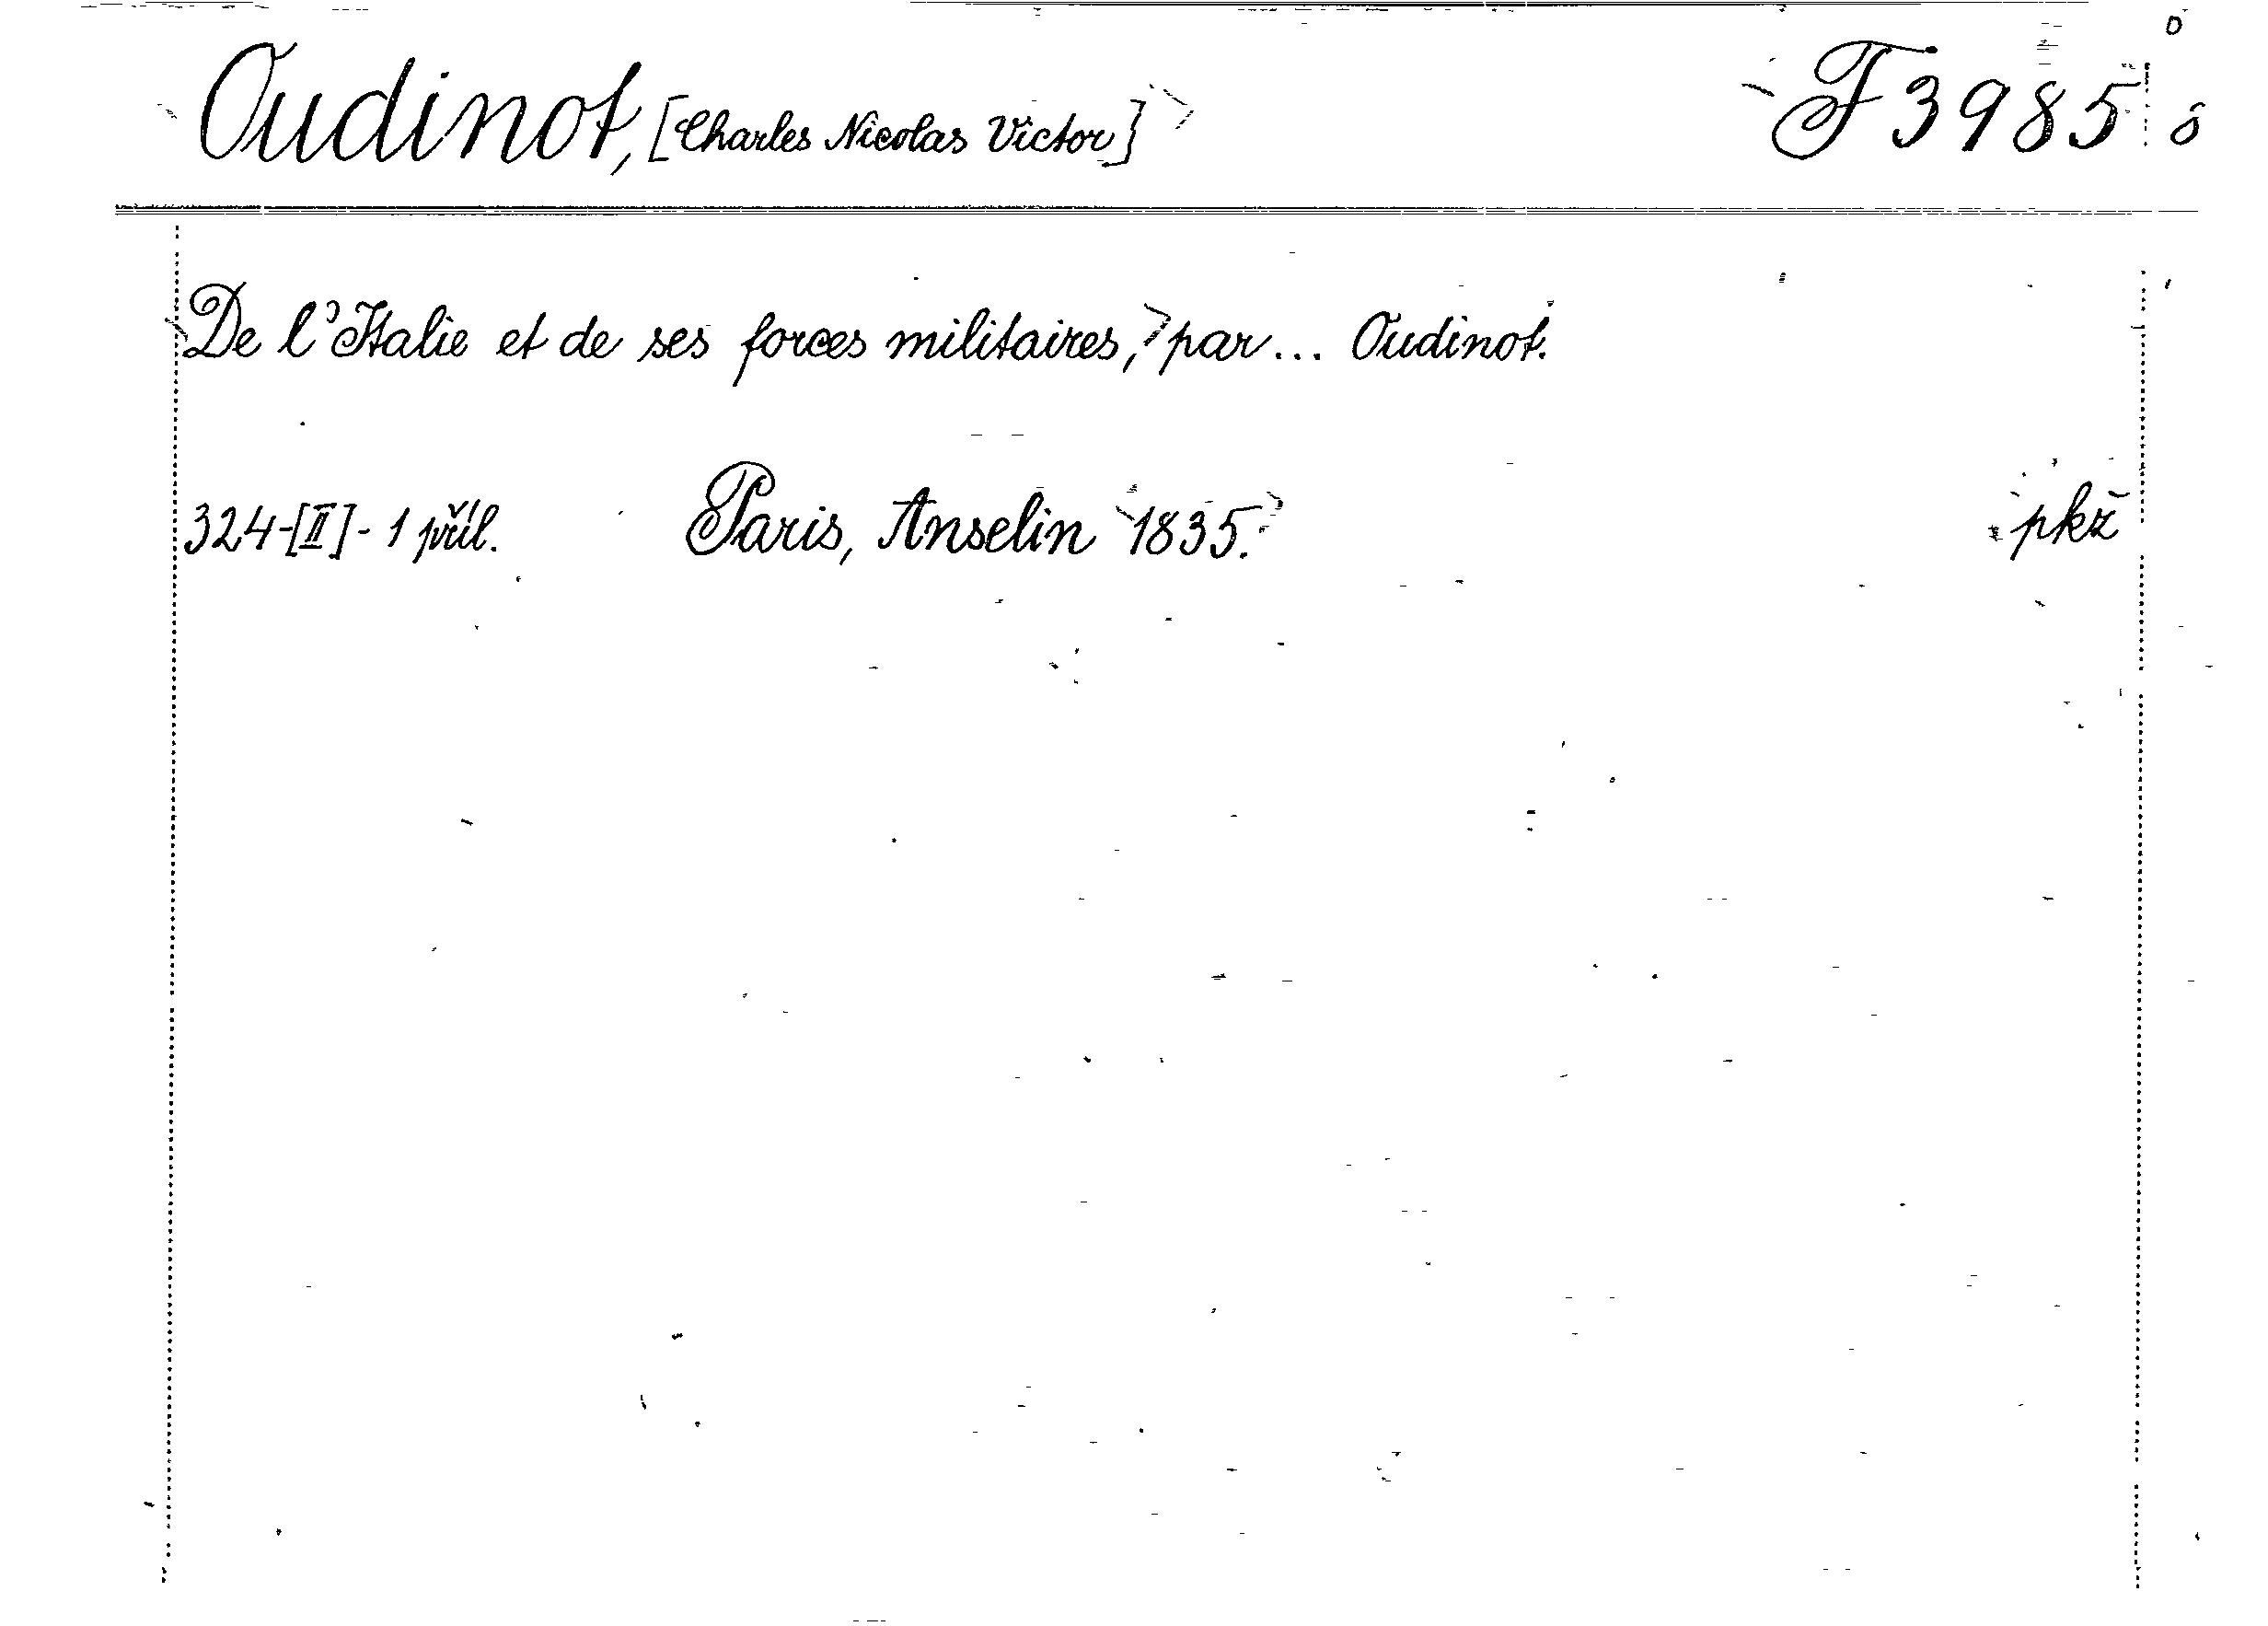 Oudinot, [Charles Nicolas Victor] F 3985
De l'Italie et de ses forces militaires, par... Oudinot.
324-[II]- 1 příl. Paris, Anselin 1835. pkž